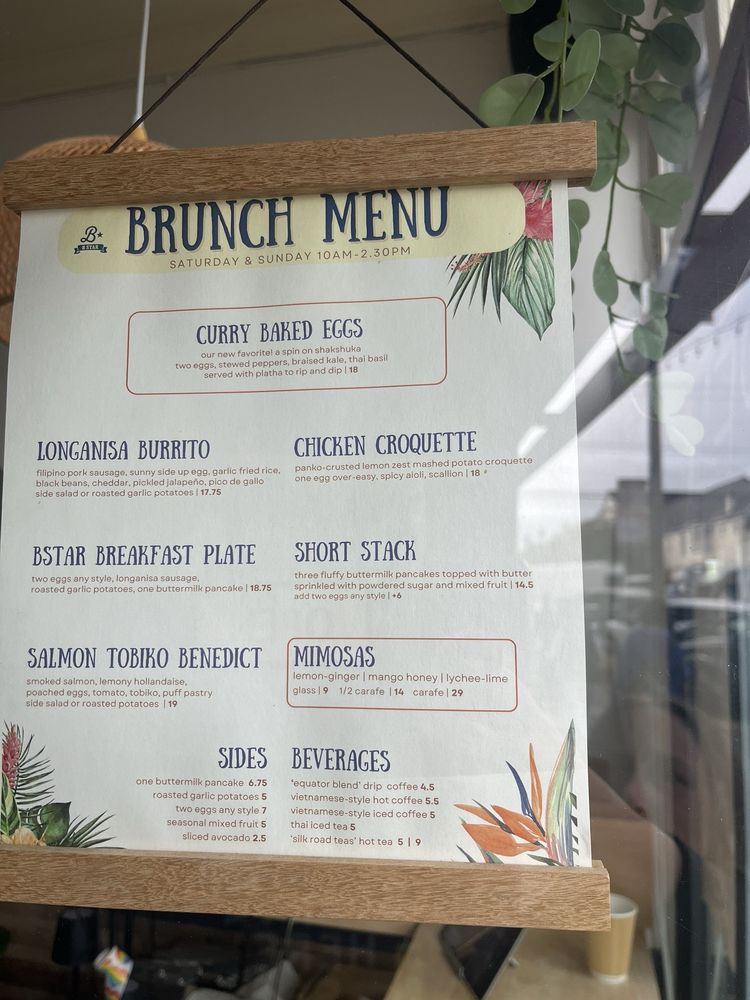 B★
B STAR
BRUNCH MENU
SATURDAY & SUNDAY 10AM-2.30PM
CURRY BAKED EGGS
our new favorite! a spin on shakshuka
two eggs, stewed peppers, braised kale, thai basil
served with platha to rip and dip | 18
LONGANISA BURRITO
filipino pork sausage, sunny side up egg, garlic fried rice,
black beans, cheddar, pickled jalapeño, pico de gallo
side salad or roasted garlic potatoes | 17.75
CHICKEN CROQUETTE
panko-crusted lemon zest mashed potato croquette
one egg over-easy, spicy aioli, scallion | 18
BSTAR BREAKFAST PLATE
two eggs any style, longanisa sausage,
roasted garlic potatoes, one buttermilk pancake | 18.75
SHORT STACK
three fluffy buttermilk pancakes topped with butter
sprinkled with powdered sugar and mixed fruit | 14.5
add two eggs any style | +6
SALMON TOBIKO BENEDICT
smoked salmon, lemony hollandaise,
poached eggs, tomato, tobiko, puff pastry
side salad or roasted potatoes | 19
MIMOSAS
lemon-ginger | mango honey | lychee-lime
glass | 9 1/2 carafe | 14 carafe | 29
SIDES
one buttermilk pancake 6.75
roasted garlic potatoes 5
two eggs any style 7
seasonal mixed fruit 5
sliced avocado 2.5
BEVERAGES
'equator blend' drip coffee 4.5
vietnamese-style hot coffee 5.5
vietnamese-style iced coffee 5
thai iced tea 5
'silk road teas' hot tea 5 | 9